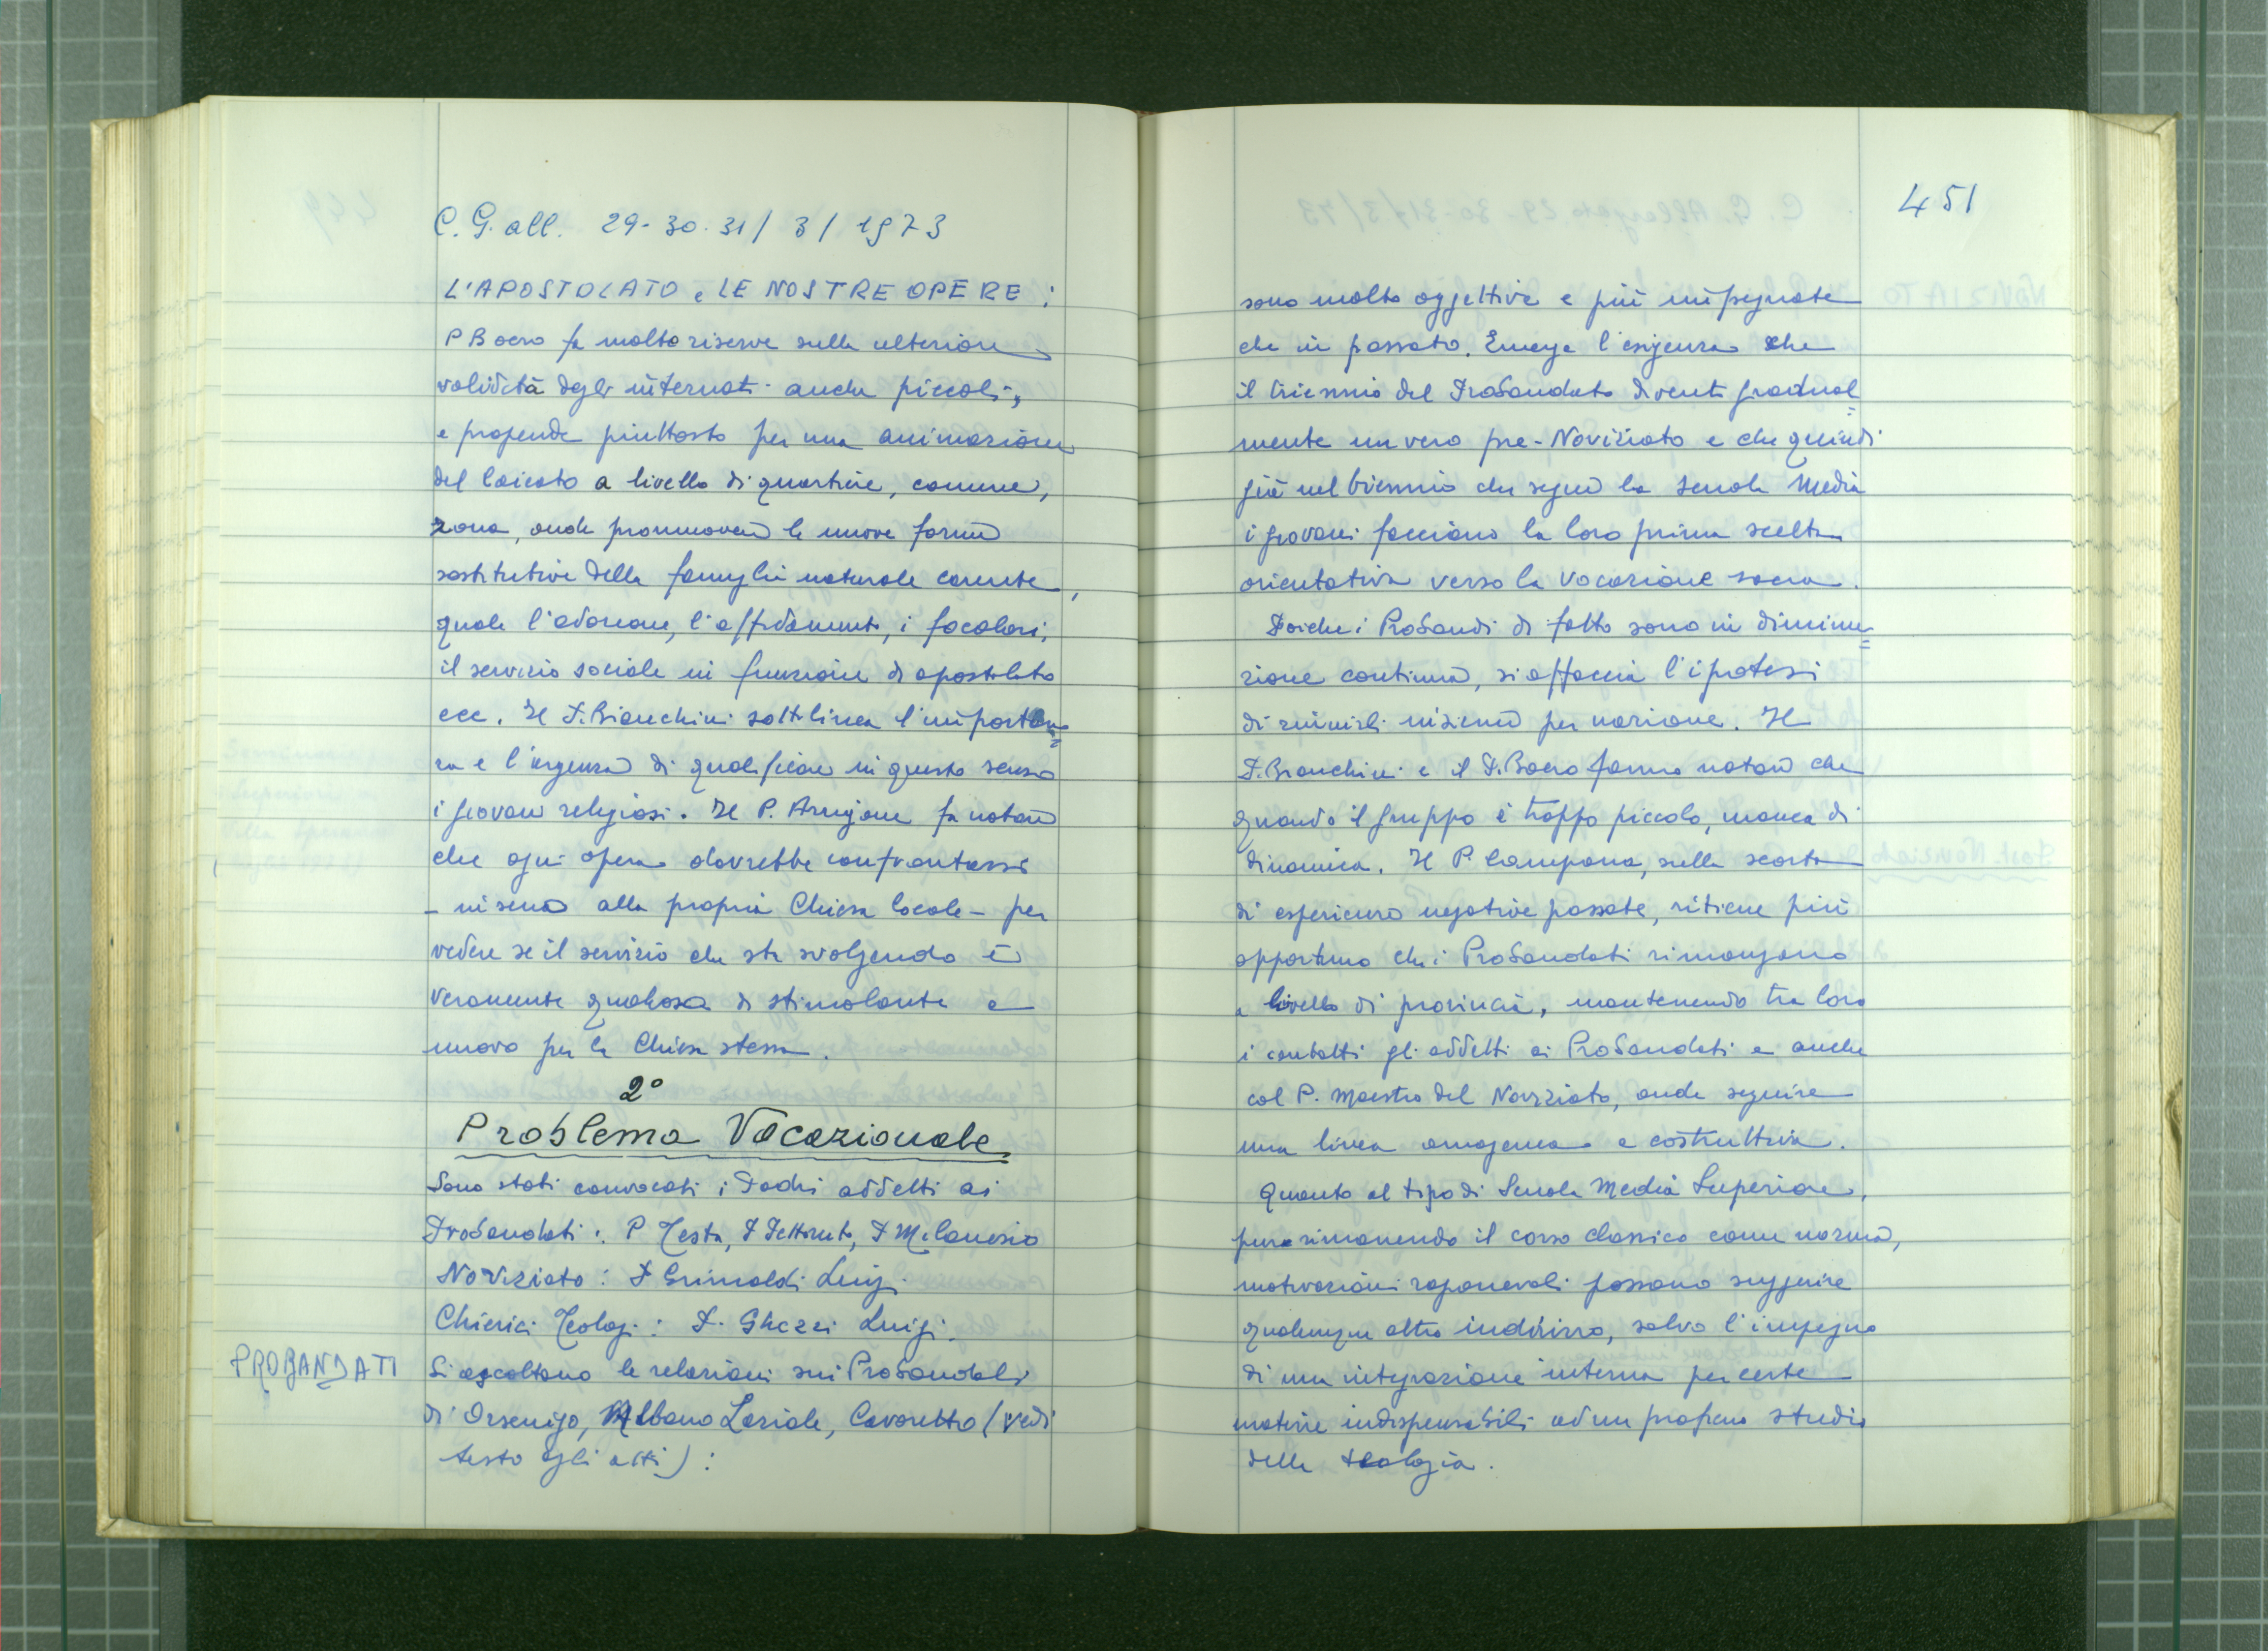 C. G. all. 29-30-31/3/1973
L'APOSTOLATO e LE NOSTRE OPERE:
P Boero fa molte riserve sulla ulteriore
validità degli internati anche piccoli,
e propende piuttosto per una animazione
del laicato a livello di quartiere, comune,
zona, onde promuovere le nuove forme
sostitutive della famiglia naturale carente,
quale l'adozione, l'affidamento, i focolari,
il servizio sociale in funzione di apostolato
ecc. Il P. Bianchini sottolinea l'importan=
za e l'urgenza di qualificare in questo senso
i giovani religiosi. Il P. Arrigoni fa notare
che ogni opera dovrebbe confrontarsi
- in seno alla propria Chiesa locale - per
vedere se il servizio che sta svolgendo è
veramente qualcosa di stimolante e
nuovo per la Chiesa stessa.
2°
Problema Vocazionale
Sono stati convocati i Padri addetti ai
Probandati: P Testa, P Pettoruto, P Milanesio
Noviziato: P Grimaldi Luigi
Chierici Teologi: P. Ghezzi Luigi.
PROBANDATI
Si ascoltano le relazioni sui Probandati
di Orsenigo, Albano Laziale, Cavoretto (vedi
testo agli atti):
451
sono molto oggettive e più impegnate
che in passato. Emerge l'esigenza che
il triennio del Probandato diventi gradual=
mente un vero pre-Noviziato e che quindi
già nel biennio che segue la Scuola Media
i giovani facciano la loro prima scelta
orientativa verso la vocazione sacra.
Poiché i Probandi di fatto sono in diminu=
zione continua, si affaccia l'ipotesi
di riunirli insieme per nazione. Il
P. Bianchini e il P. Boero fanno notare che
quando il gruppo è troppo piccolo, manca di
dinamica. Il P. Campana, sulla scorta
di esperienze negative passate, ritiene più
opportuno che i Probandati rimangano
a livello di provincia, mantenendo tra loro
i contatti gli addetti ai Probandati e anche
col P. Maestro del Noviziato, onde seguire
una linea omogenea e costruttiva.
Quanto al tipo di Scuola Media Superiore,
pure rimanendo il corso classico come norma,
motivazioni ragionevoli possono suggerire
qualunque altro indirizzo, salvo l'impegno
di una integrazione interna per certe
materie indispensabili ad un proficuo studio
della teologia.